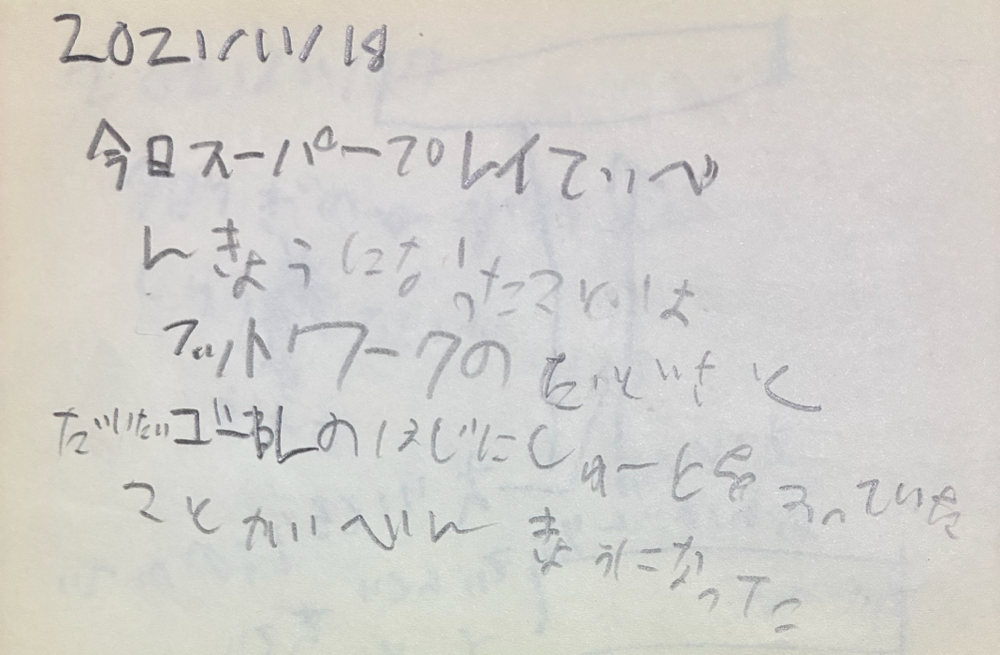 2021/11/18
今日スーパープレイでいいべ
んきょうになったことは
フットワークの だいじさと
だいたいゴールのはじにしゅーとをうっていた
ことがいいべんきょうになった